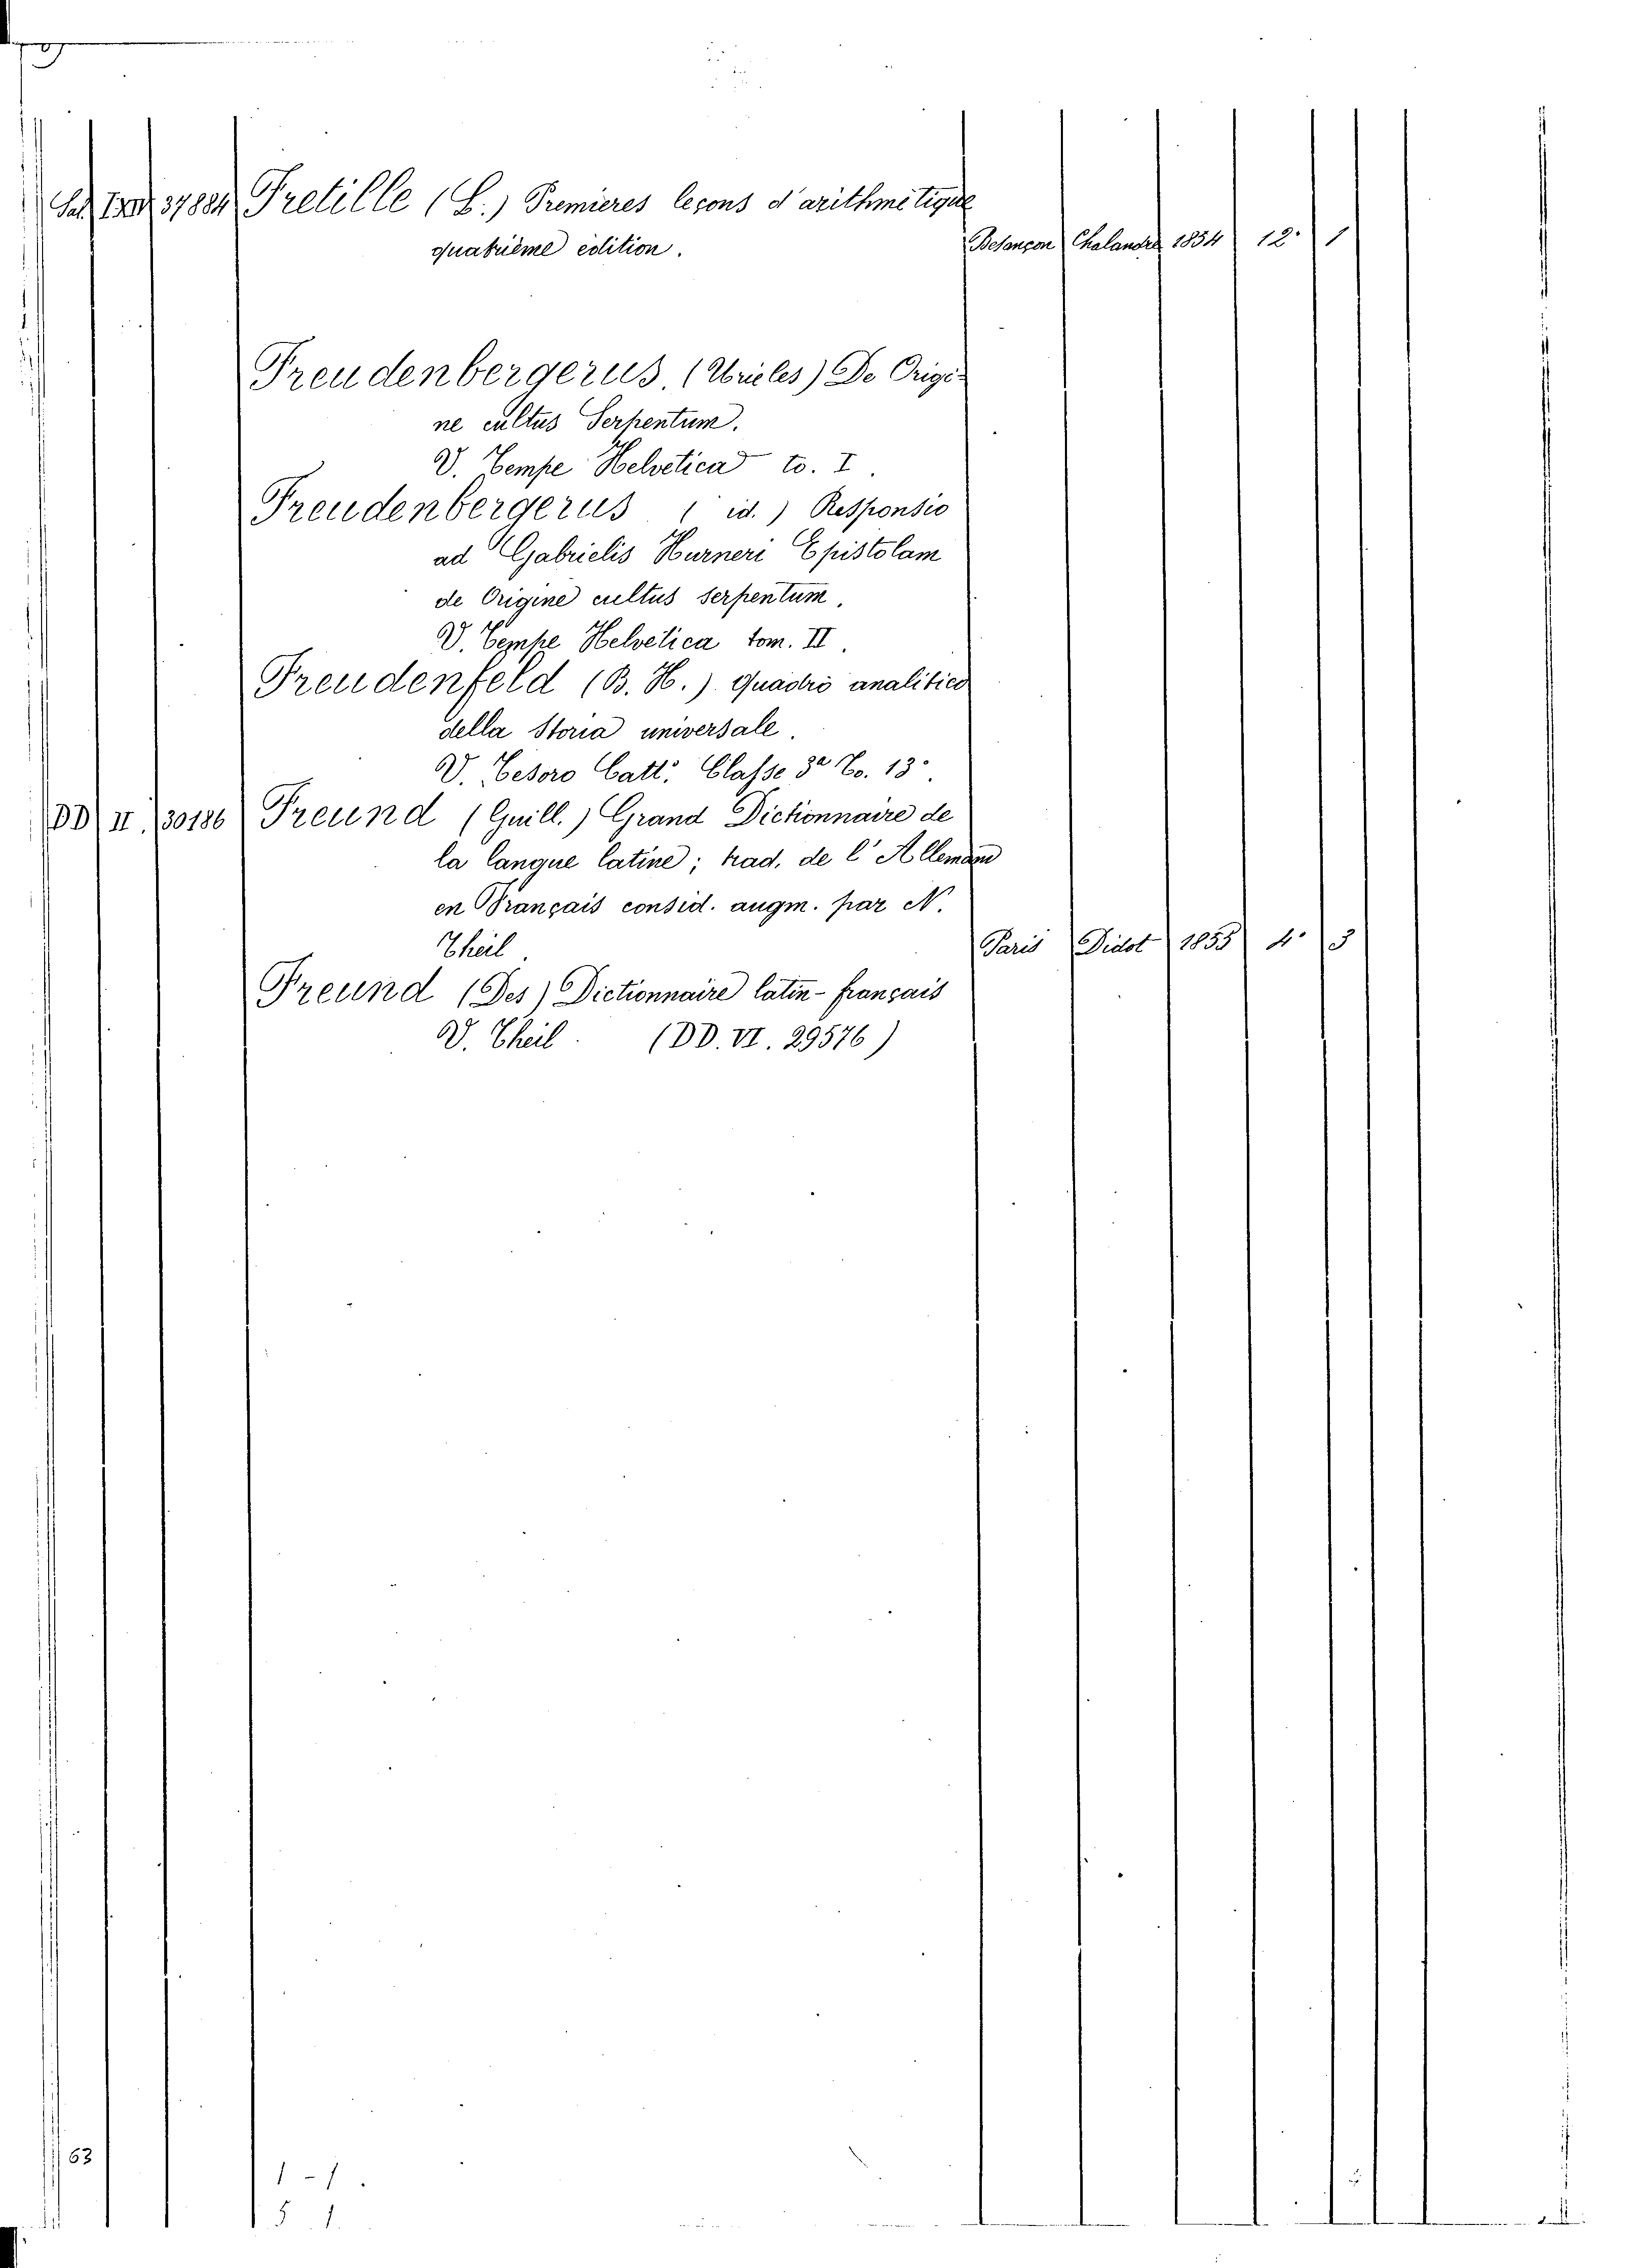 37884 Fretille (L.) Premieres leçons d'arithmetique
quatrième edition. Besançon Chalandre 1854 12° 1
Freudenbergerus (Urieles) De Origi-
ne cultus Serpentum.
V. Tempe Helvetica to. I.
Freudenbergerus (id.) Responsio
ad Gabrielis Hurneri Epistolam
de Origine cultus serpentum.
V. Tempe Helvetica tom. II.
Freudenfeld (B. H.) Quadro analitico
della Storia universale.
V. Tesoro Catt. Classe 3a To. 13°.
DD II. 30186 Freund (Guill.) Grand Dictionnaire de
la langue latine; trad. de l'Allemand
en Français consid. augm. par N.
Theil. Paris Didot 1855 4° 3
Freund (Des) Dictionnaire latin-français
V. Theil. (DD. VI. 29576)
63
1-1.
5 1